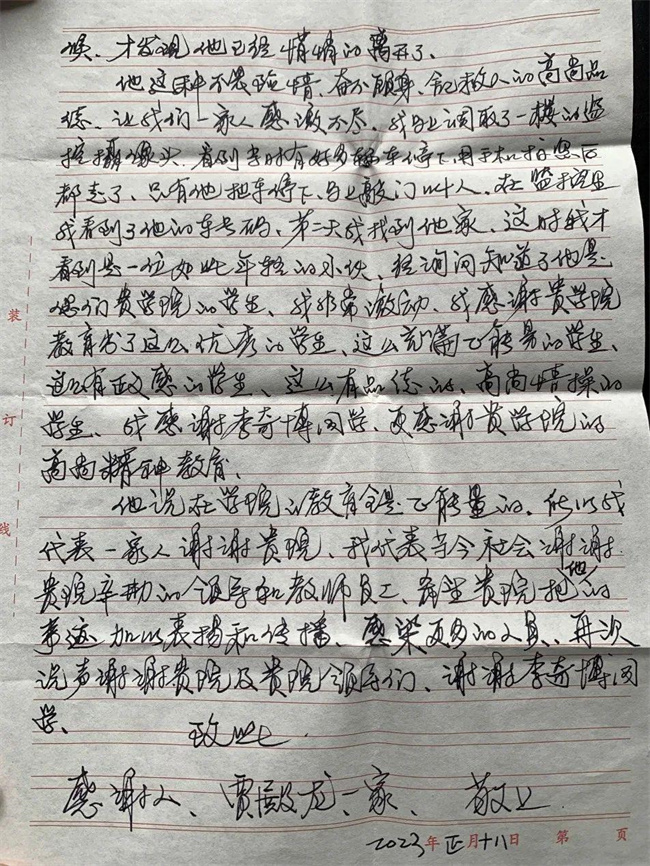 候、才发现他已经悄悄的离开了。
他这种不畏险情、奋不顾身、舍己救人的高尚品
德、让我们一家人感激不尽、我马上调取了一楼的监
控摄像头、看到当时有好多辆车停下用手机拍照后
都走了、只有他把车停下、马上敲门叫人、在监控里
我看到了他的车号码、第二天我找到他家、这时我才
看到是一位如此年轻的小伙、经询问知道了他是
咱们贵学院的学生、我非常激动、我感谢贵学院
教育出了这么优秀的学生、这么充满正能量的学生、
这么有正义感的学生、这么有品德的、高尚情操的
学生、我感谢李奇博同学、更感谢贵学院的
高尚精神教育、
他说在学院的教育全是正能量的、所以我
代表一家人谢谢贵院、我代表当今社会谢谢
贵院辛勤的领导和教师员工、希望贵院把他的
事迹加以表扬和传播、感染更多的人员、再次
说声谢谢贵院及贵院领导们、谢谢李奇博同
学、
致此
感谢人、贾殿龙一家、敬上
2023年正月十八日 第 页
装
订
线